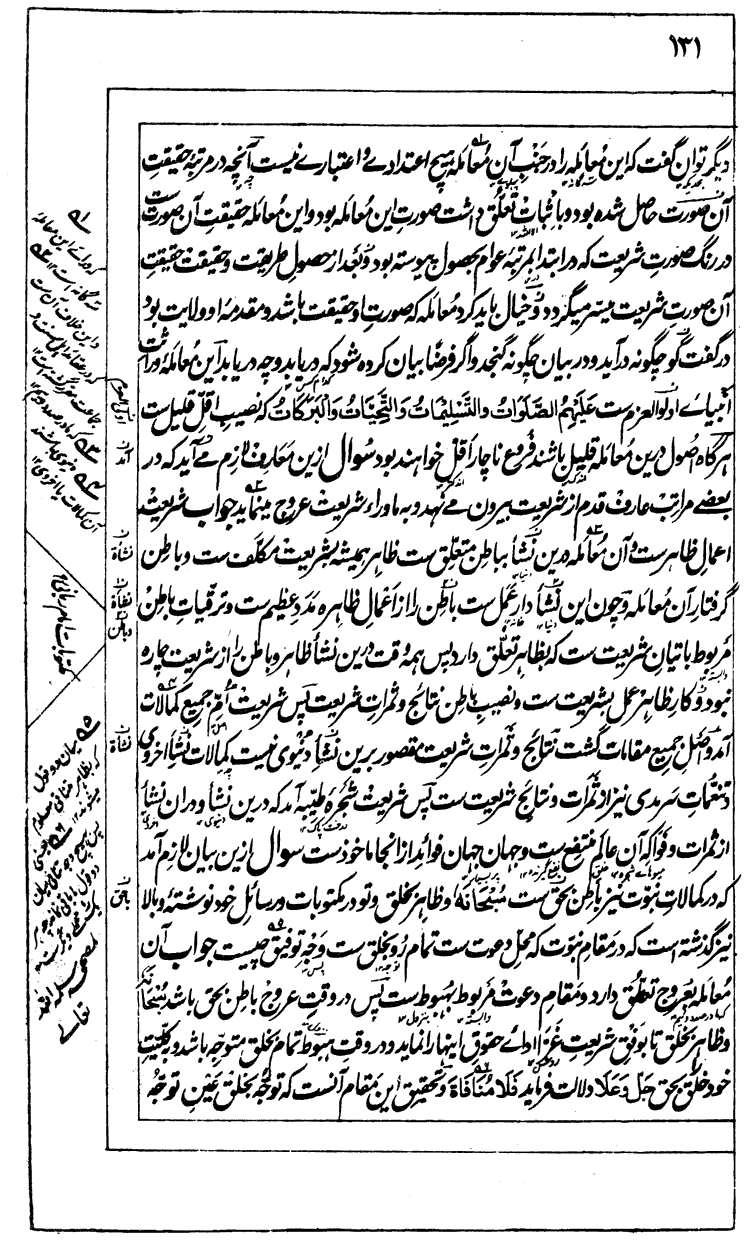 ۱۳۱
دیگر توان گفت که این معامله را در جنب آن معامله هیچ اعتدادے و اعتبارے نیست آنچه در مرتبۂ حقیقت
آن صورت حاصل شده بود و با ثبات تعلّق داشت صورتِ این معامله بود و این معامله حقیقتِ آن صورت ست
در رنگ صورتِ شریعت که در ابتدا بمرتبۂ عوام بحصول پیوسته بود و بعد از حصولِ طریقت و حقیقت حقیقتِ
آن صورتِ شریعت میسّر میگردد و خیال باید کرد معامله که صورتِ او حقیقت باشد و مقدمۂ او ولایت بود
در گفت گو چگونه در آید و در بیان چگونه گنجد و اگر فرضًا بیان کرده شود که در یابد و چه در یابد این معامله وراثتِ
انبیاے اولو العزم ست عَلَیْهِمُ الصَّلَوَاتُ وَالتَّسْلِیْمَاتُ وَالتَّحِیَّاتُ وَالْبَرَکَاتُ که نصیبِ اقلّ قلیل ست
هرگاه اصول درین معامله قلیل باشند فروع ناچار اقل خواهند بود سوال ازین معارف لازم مے آید که در
بعضے مراتب عارف قدم از شریعت بیرون مے نهد و به ماوراء شریعت عروج مینماید جواب شریعت
اعمالِ ظاهر ست و آن معامله درین نشأ بباطن متعلّق ست ظاهر همیشه بشریعت مکلّف ست و باطن
گرفتارِ آن معامله و چون این نشأ دارِ عمل ست باطن را از اعمالِ ظاهره مددِ عظیم ست و ترقیاتِ باطن
مربوط باتیانِ شریعت ست که بظاهر تعلّق دارد پس همه وقت درین نشأ ظاهر و باطن را از شریعت چاره
نبود و کارِ ظاهر عمل بشریعت ست و نصیبِ باطن نتائج و ثمراتِ شریعت پس شریعت اُمِّ جمیع کمالات
آمد و اصلِ جمیع مقامات گشت نتائج و ثمراتِ شریعت مقصور برین نشأ دنیوی نیست کمالاتِ نشأ اخروی
و تنعماتِ سرمدی نیز از ثمرات و نتائج شریعت ست پس شریعت شجرۂ طیّبه آمد که درین نشأ و دران نشأ
از ثمرات و فواکه آن عالَم منتفع ست و جهان جهان فوائد از انجا ماخوذ ست سوال ازین بیان لازم آمد
که در کمالاتِ نبوّت نیز باطن بحق ست سُبْحَانَهٗ و ظاهر بخلق و تو در مکتوبات و رسائل خود نوشتۂ و بالا
نیز گذشته است که در مقامِ نبوّت که محلِ دعوت ست تمام رو بخلق ست وجهِ توفیق چیست جواب آن
معامله بعروج تعلّق دارد و مقامِ دعوت مربوط بهبوط ست پس در وقتِ عروج باطن بحق باشد سُبْحَانَهٗ
و ظاهر بخلق تا بوفق شریعتِ غرّا اداے حقوق اینها را نماید و در وقتِ هبوط تمام بخلق متوجّه باشد و بکلّیتِ
خود خلق را بحق جَلَّ وَعَلَا دلالت فرماید فَلَا مُنَافَاةَ و تحقیقِ این مقام آنست که توجّه بخلق عینِ توجّه
نشأة
نشأة
نشأة
مکتوبات امام ربانی